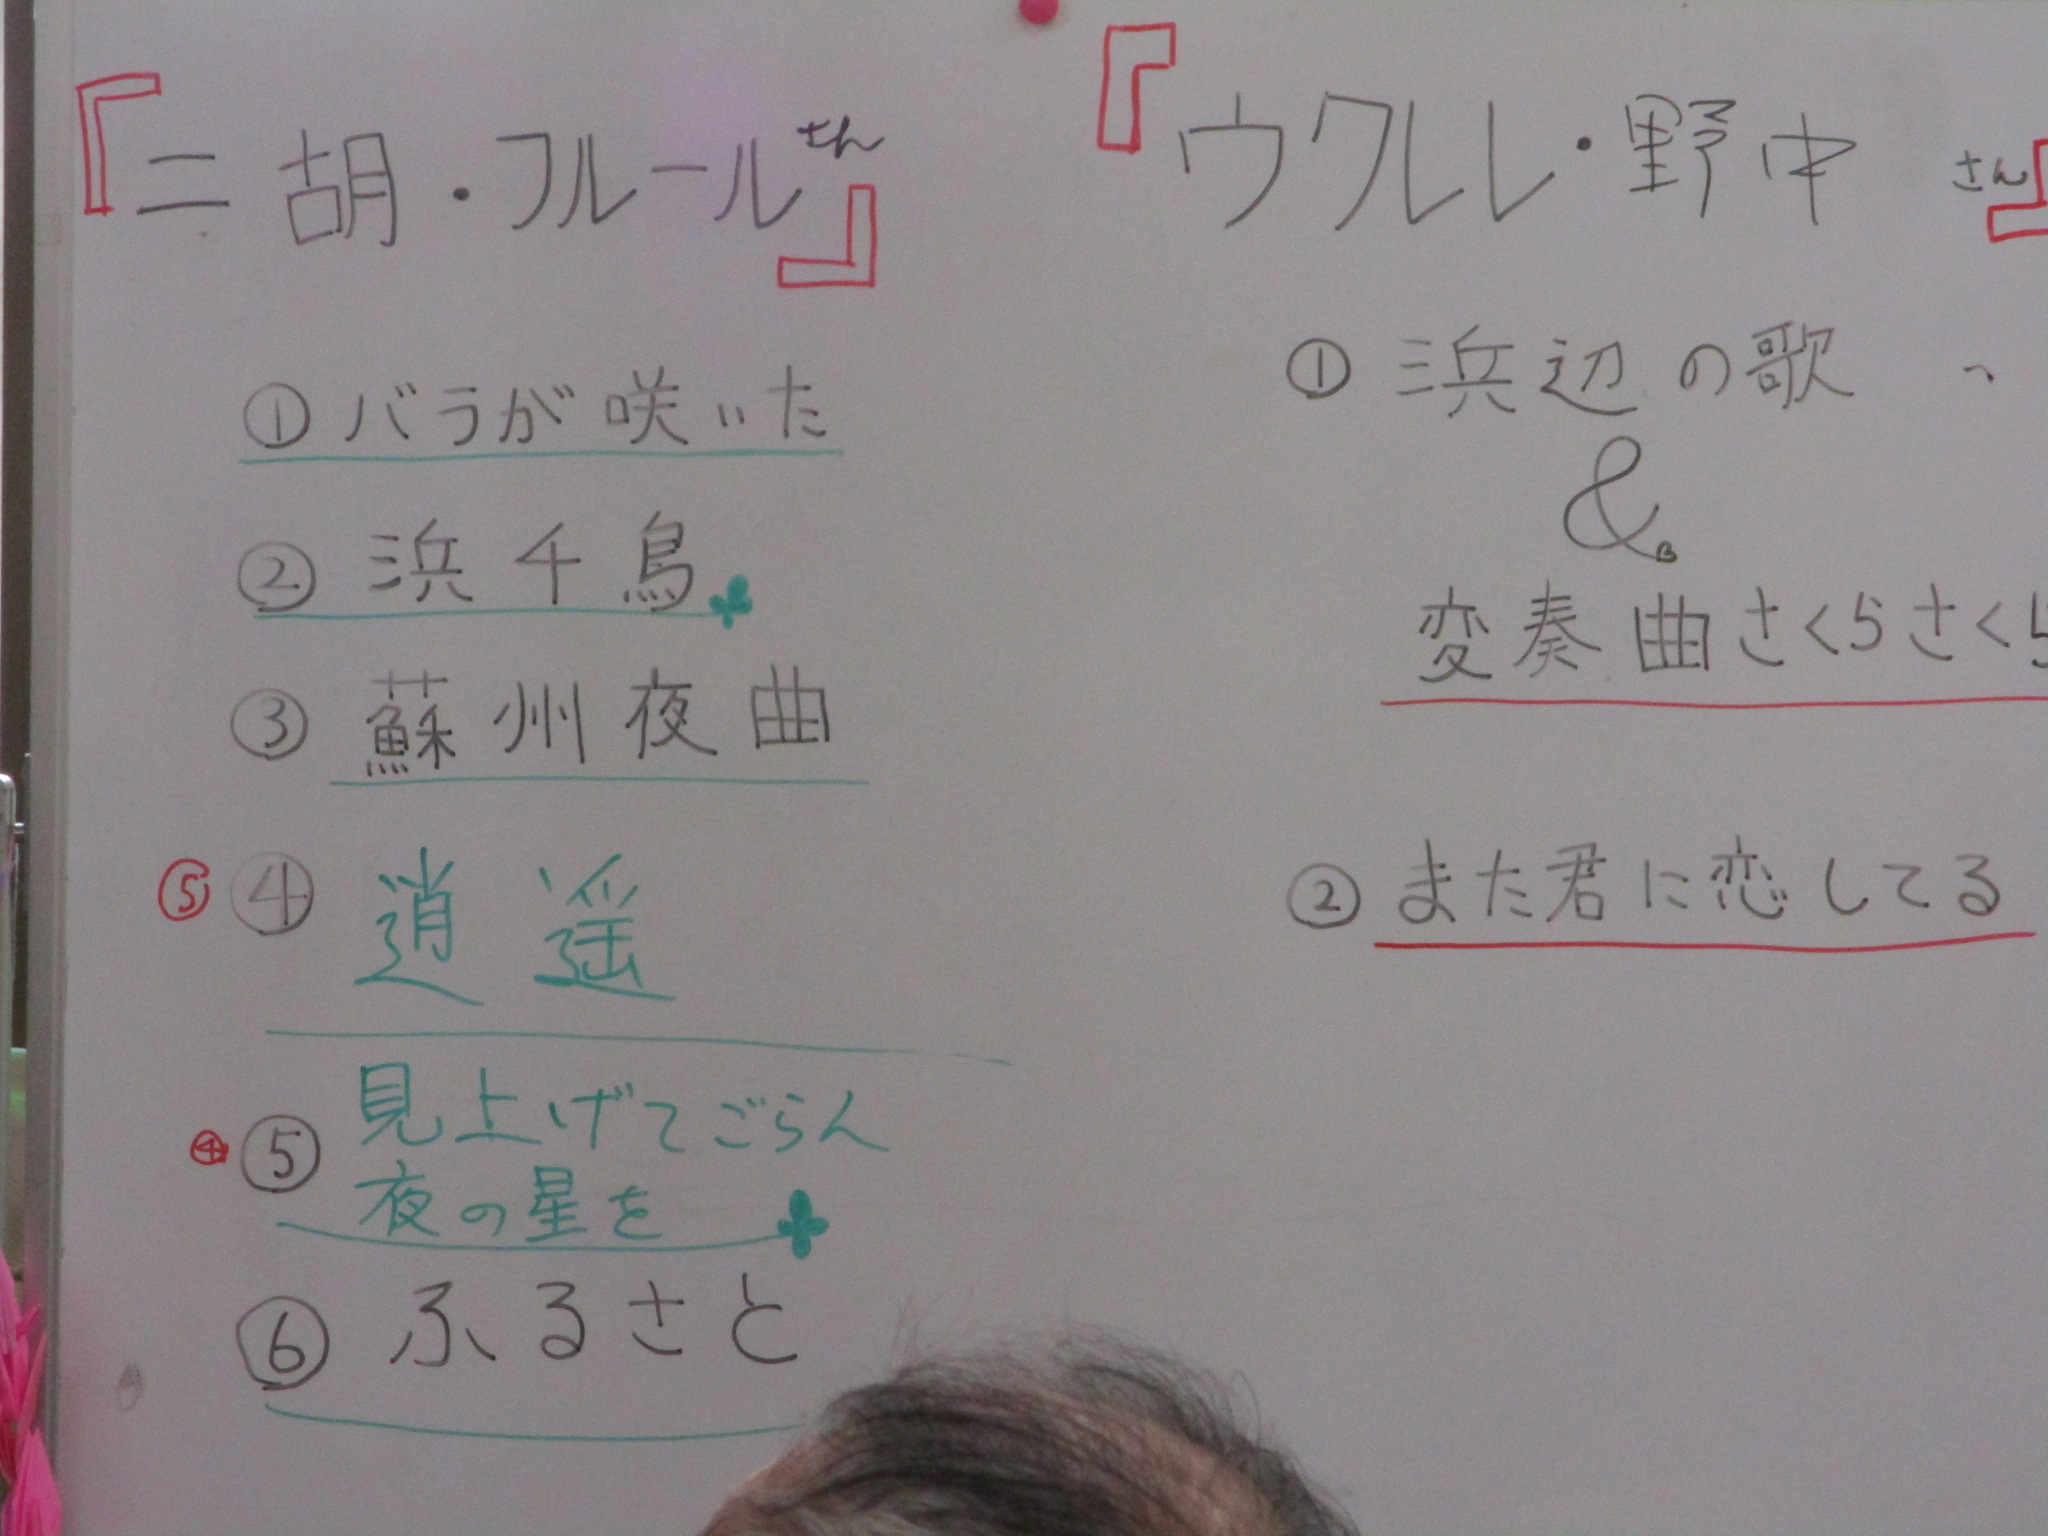 『二胡・フルールさん』
①バラが咲いた
②浜千鳥
③蘇州夜曲
⑤④逍遥
④⑤見上げてごらん
夜の星を
⑥ふるさと
『ウクレレ・野中さん』
①浜辺の歌
&
変奏曲さくらさくら
②また君に恋してる